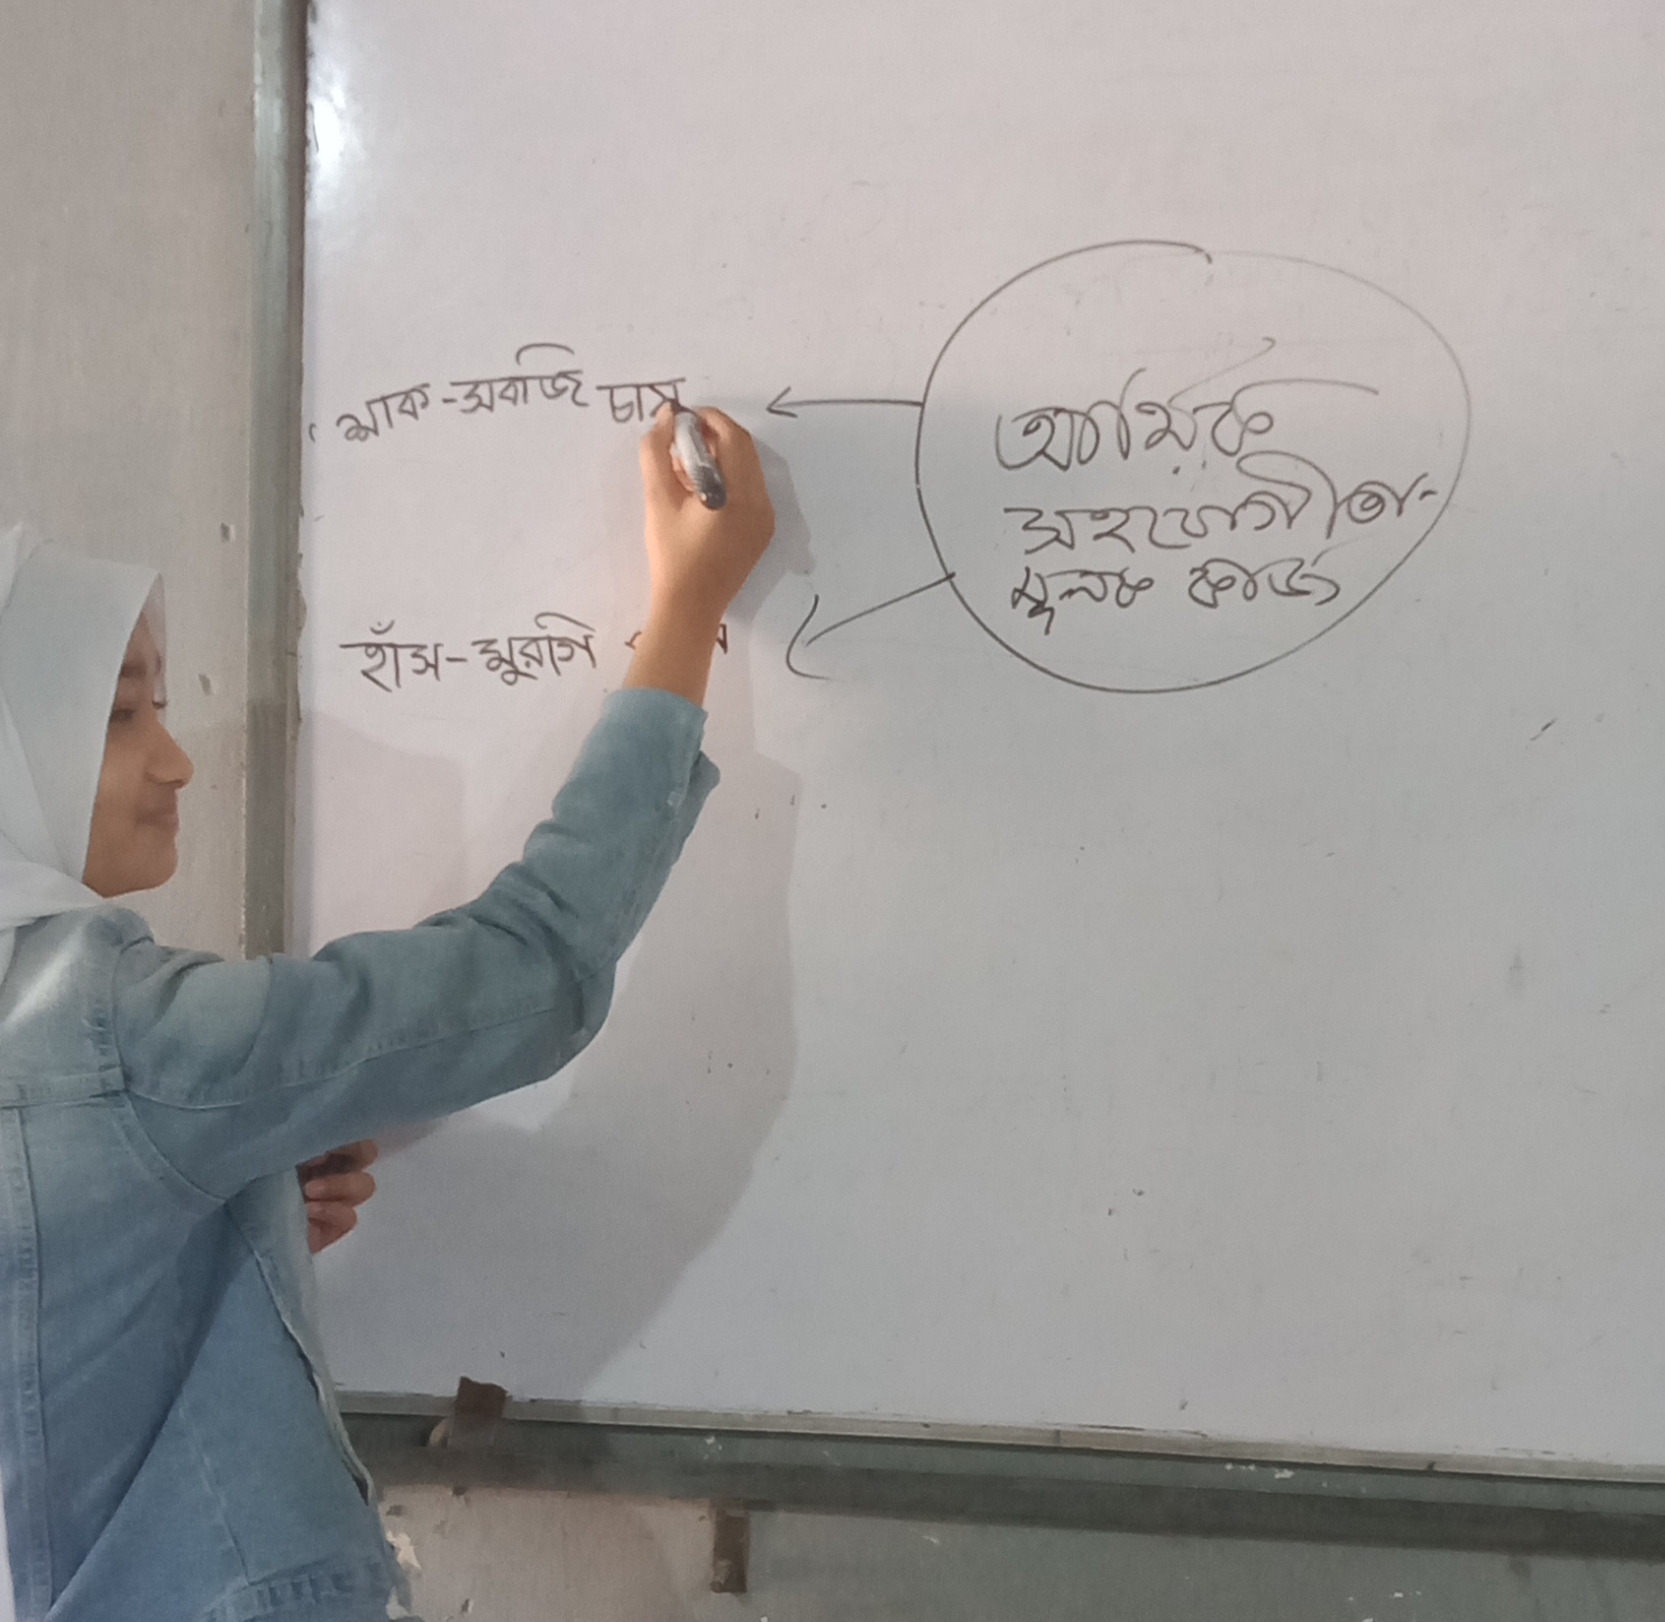 শাক-সবজি চাষ
হাঁস-মুরগি
আর্থিক
সহযোগীতা-
মূলক কাজ